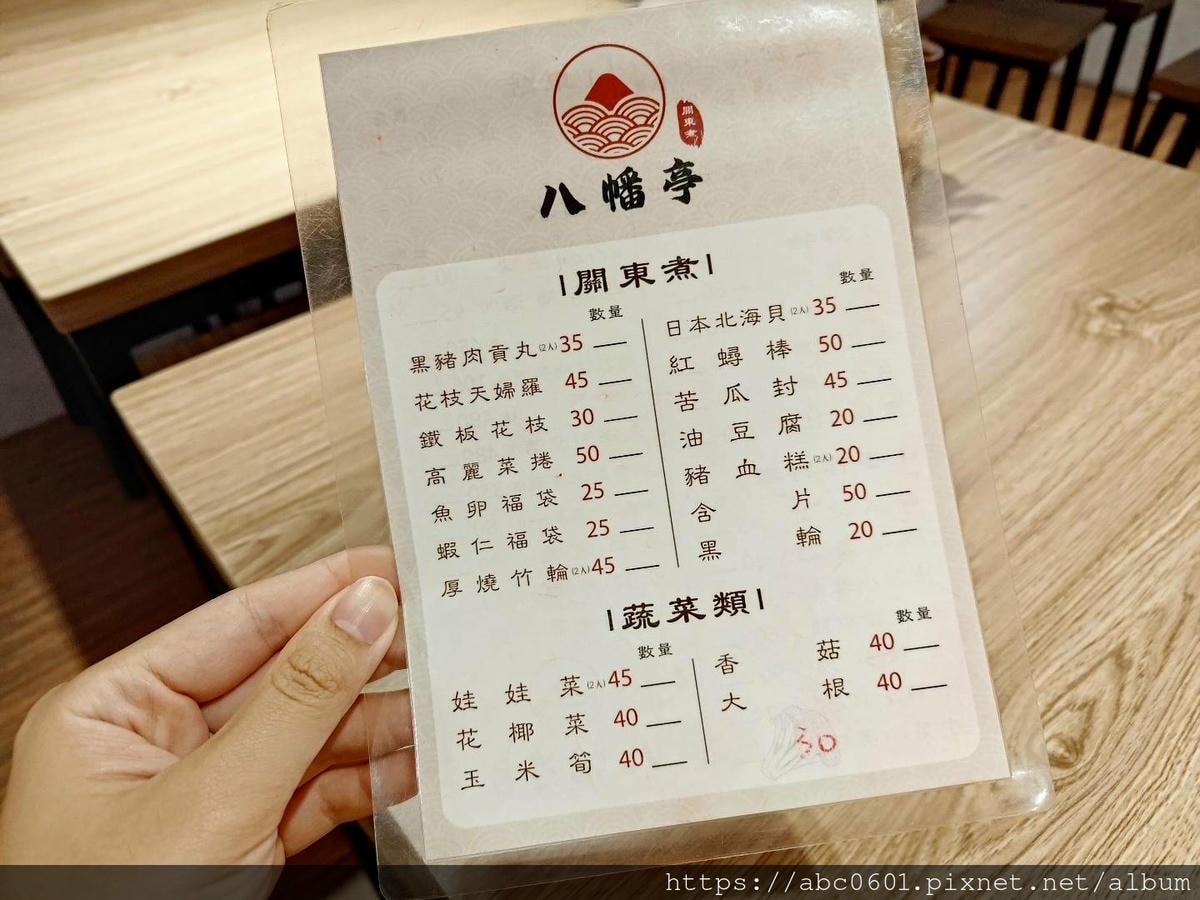 關東煮
八幡亭
關東煮
數量
黑豬肉貢丸(2入)35
花枝天婦羅 45
鐵板花枝 30
高麗菜捲 50
魚卵福袋 25
蝦仁福袋 25
厚燒竹輪(2入)45
數量
日本北海貝(2入)35
紅蟳棒 50
苦瓜封 45
油豆腐 20
豬血糕(2入)20
含片 50
黑輪 20
蔬菜類
數量
娃娃菜(2入)45
花椰菜 40
玉米筍 40
數量
香菇 40
大根 40
30
https://abc0601.pixnet.net/album